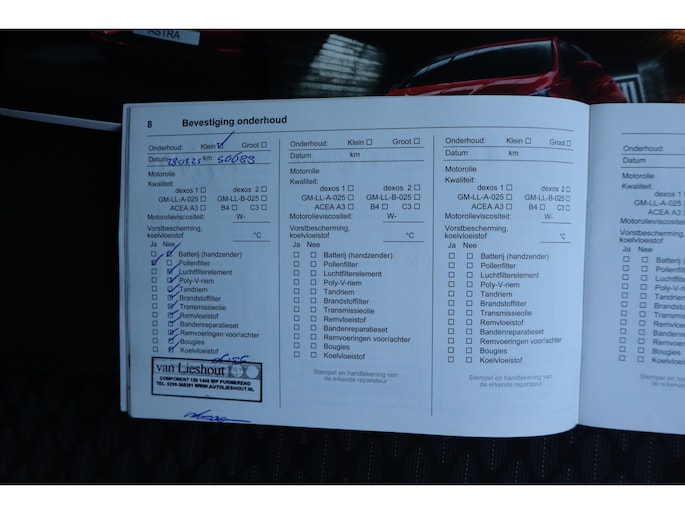 ASTRA
8 Bevestiging onderhoud
Onderhoud: Klein ☑ Groot ☐
Datum km 50689
Motorolie
Kwaliteit:
dexos 1 ☐ dexos 2 ☐
GM-LL-A-025 ☐ GM-LL-B-025 ☐
ACEA A3 ☐ B4 ☐ C3 ☐
Motorolieviscositeit: W-
Vorstbescherming,
koelvloeistof °C
Ja Nee
Batterij (handzender)
Pollenfilter
Luchtfilterelement
Poly-V-riem
Tandriem
Brandstoffilter
Transmissieolie
Remvloeistof
Bandenreparatieset
Remvoeringen voor/achter
Bougies
Koelvloeistof
van Lieshout
COMPONENT 139 1446 WP PURMEREND
TEL. 0299-368381 WWW.AUTOLIESHOUT.NL
Onderhoud: Klein ☐ Groot ☐
Datum km
Motorolie
Kwaliteit:
dexos 1 ☐ dexos 2 ☐
GM-LL-A-025 ☐ GM-LL-B-025 ☐
ACEA A3 ☐ B4 ☐ C3 ☐
Motorolieviscositeit: W-
Vorstbescherming,
koelvloeistof °C
Ja Nee
☐ ☐ Batterij (handzender)
☐ ☐ Pollenfilter
☐ ☐ Luchtfilterelement
☐ ☐ Poly-V-riem
☐ ☐ Tandriem
☐ ☐ Brandstoffilter
☐ ☐ Transmissieolie
☐ ☐ Remvloeistof
☐ ☐ Bandenreparatieset
☐ ☐ Remvoeringen voor/achter
☐ ☐ Bougies
☐ ☐ Koelvloeistof
Stempel en handtekening van
de erkende reparateur
Onderhoud: Klein ☐ Groot ☐
Datum km
Motorolie
Kwaliteit:
dexos 1 ☐ dexos 2 ☐
GM-LL-A-025 ☐ GM-LL-B-025 ☐
ACEA A3 ☐ B4 ☐ C3 ☐
Motorolieviscositeit: W-
Vorstbescherming,
koelvloeistof °C
Ja Nee
☐ ☐ Batterij (handzender)
☐ ☐ Pollenfilter
☐ ☐ Luchtfilterelement
☐ ☐ Poly-V-riem
☐ ☐ Tandriem
☐ ☐ Brandstoffilter
☐ ☐ Transmissieolie
☐ ☐ Remvloeistof
☐ ☐ Bandenreparatieset
☐ ☐ Remvoeringen voor/achter
☐ ☐ Bougies
☐ ☐ Koelvloeistof
Stempel en handtekening van
de erkende reparateur
Onderhoud:
Datum
Motorolie
Kwaliteit:
dexos 1 ☐
GM-LL-A-025 ☐
ACEA A3 ☐
Motorolieviscositeit
Vorstbescherming,
koelvloeistof
Ja Nee
☐ ☐ Batterij (ha
☐ ☐ Pollenfilter
☐ ☐ Luchtfiltere
☐ ☐ Poly-V-r
☐ ☐ Tandriem
☐ ☐ Brandstof
☐ ☐ Transmis
☐ ☐ Remvloe
☐ ☐ Bandenre
☐ ☐ Remvoe
☐ ☐ Bougies
☐ ☐ Koelvloe
Stempel en
de